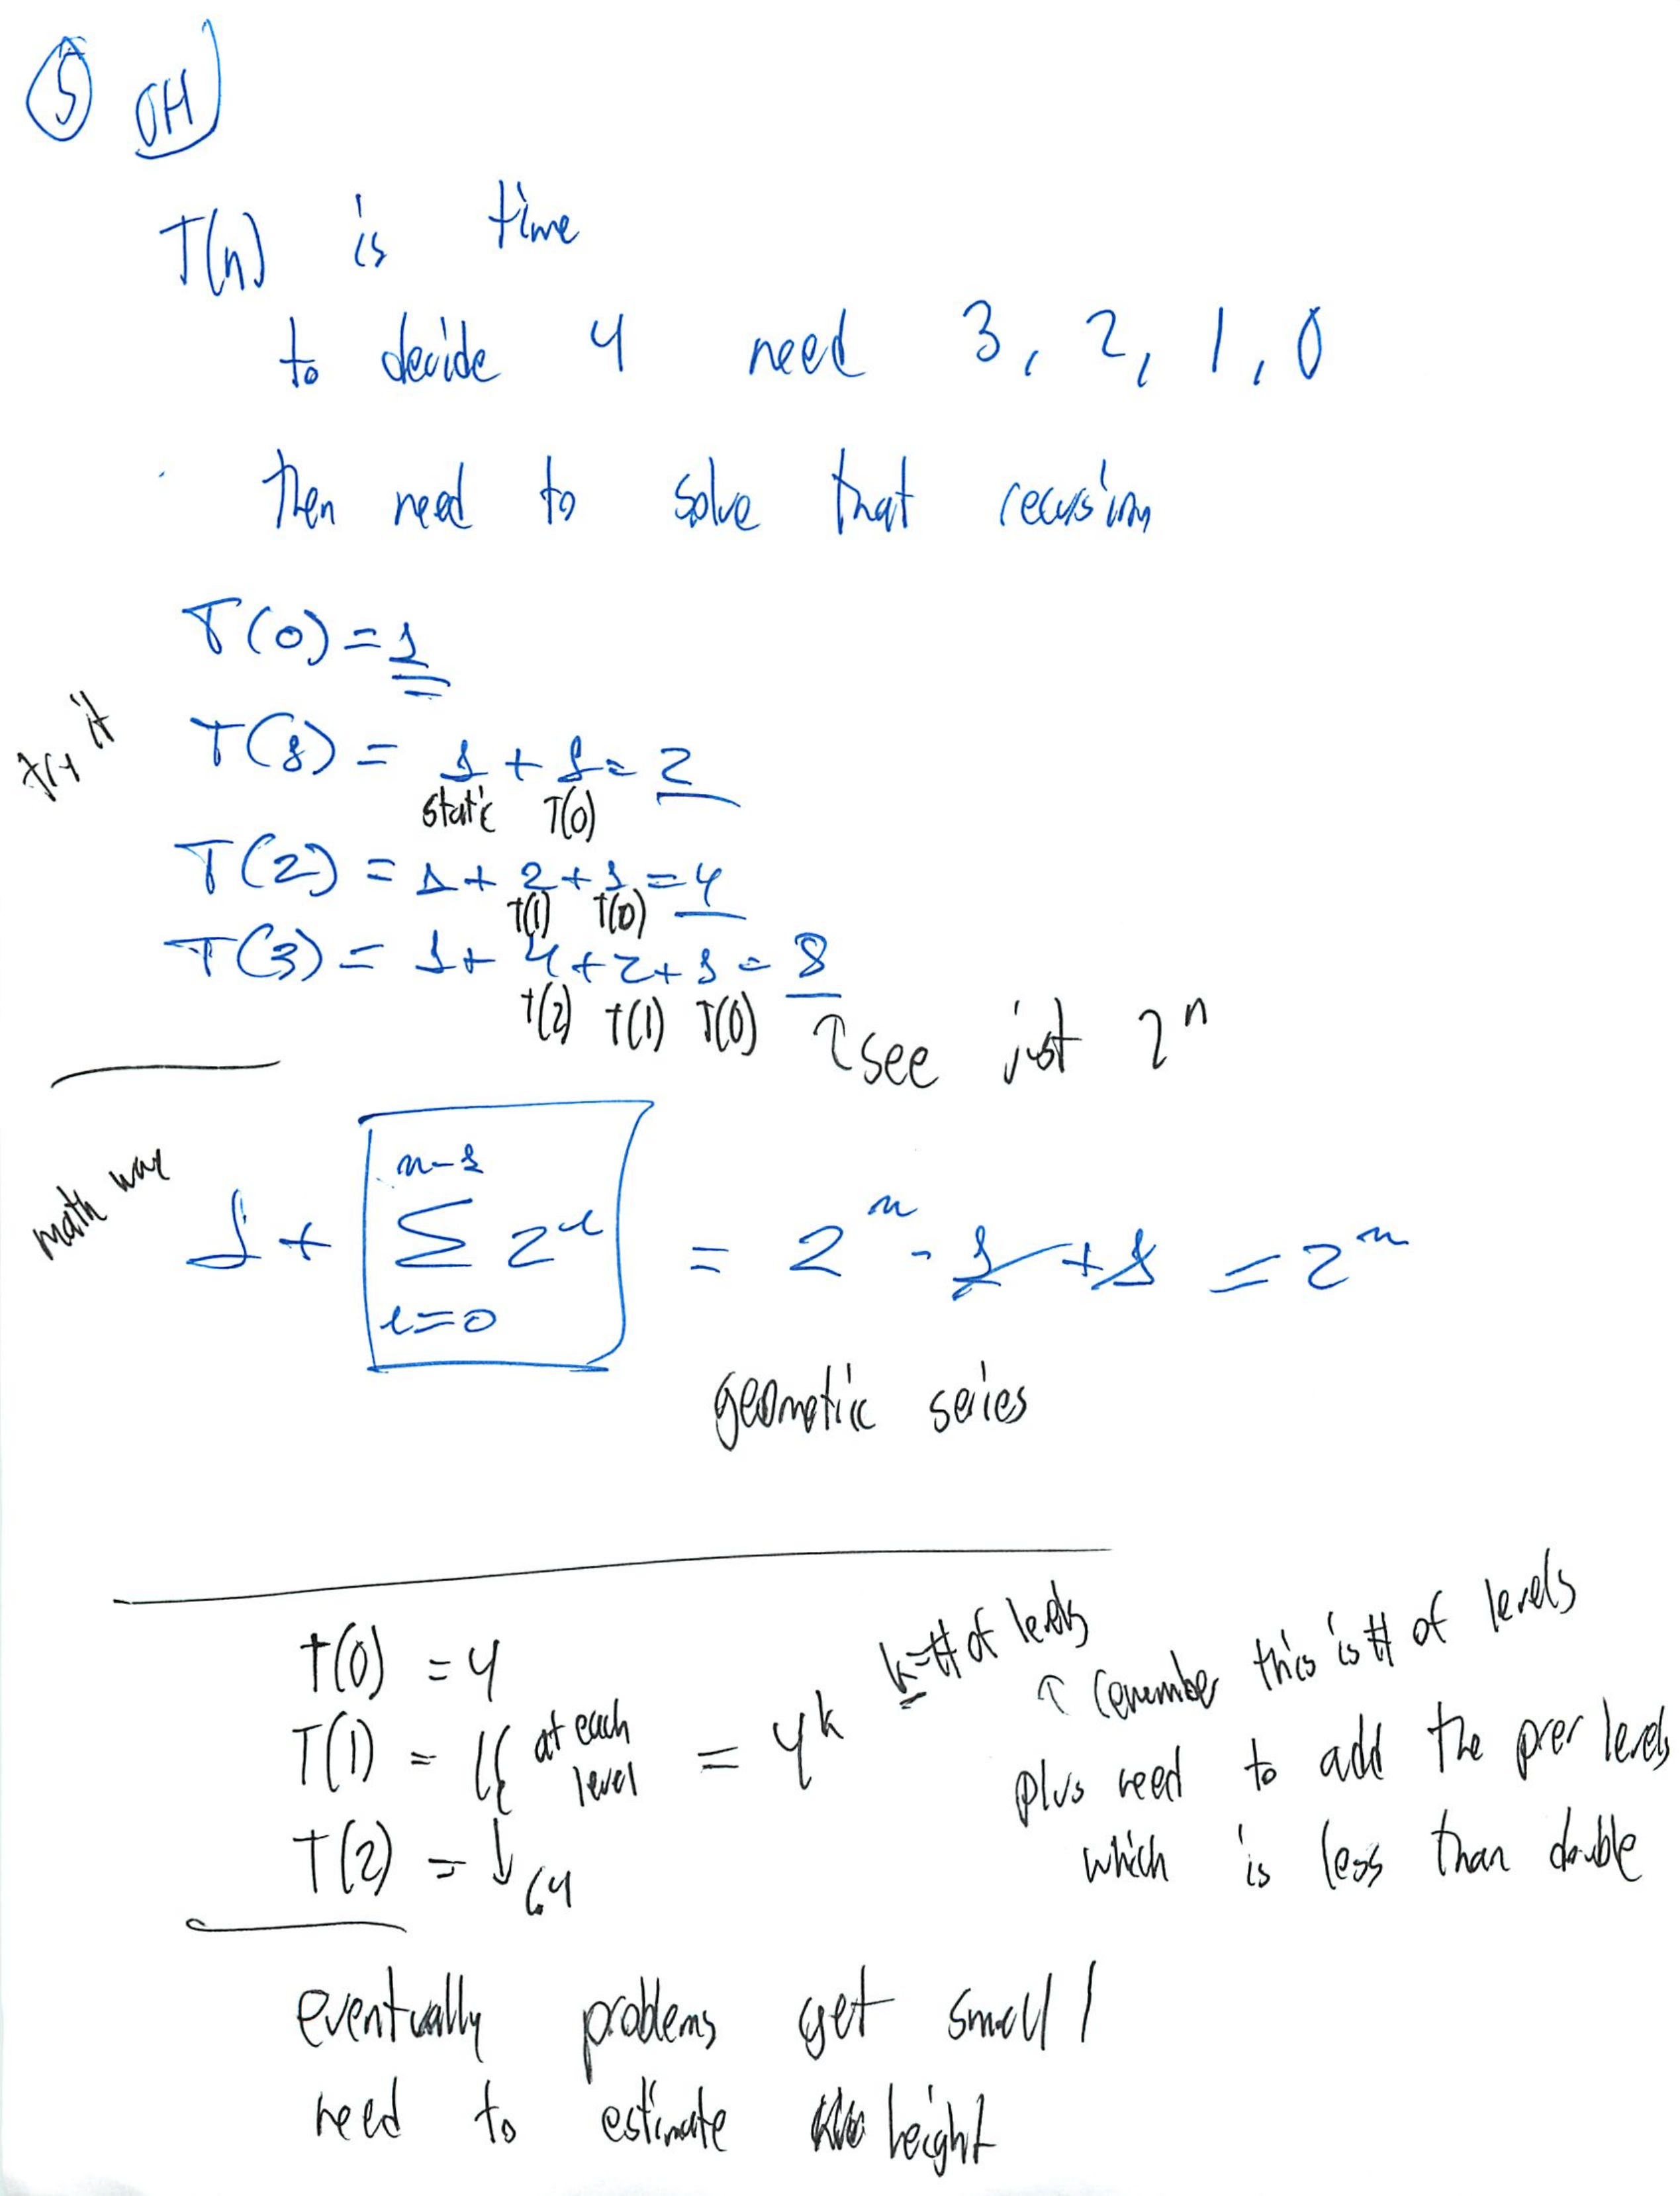 5 OH
T(n) is time
to decide 4 need 3, 2, 1, 0
then need to solve that recursion
T(0) = 1
try it
T(1) = 1 + 1 = 2
static T(0)
T(2) = 1 + 2 + 1 = 4
T(1) T(0)
T(3) = 1 + 4 + 2 + 1 = 8
T(2) T(1) T(0)
see just 2^n
math way
1 + ∑ 2^i = 2^n - 1 + 1 = 2^n
n-1
i=0
geometic series
T(0) = 4
T(1) = 16 at each level = 4^k
k = # of levels
T(2) = ↓ 64
remember this is # of levels
plus need to add the prev levels
which is less than double
eventually problems get small
need to estimate height